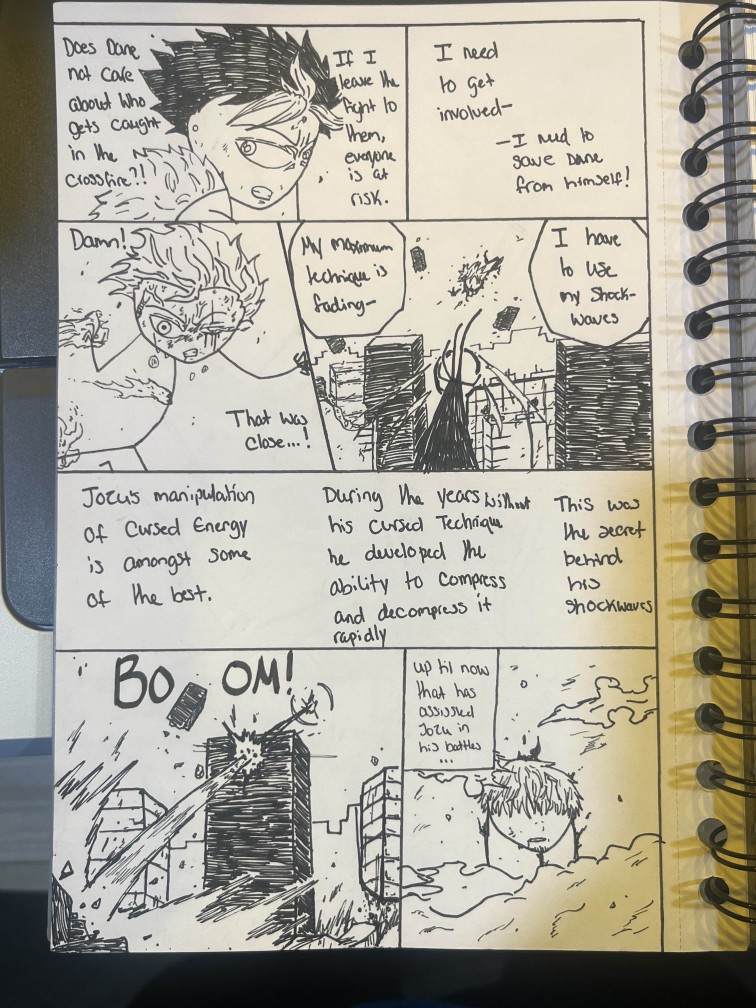 Does Dane
not Care
about who
gets caught
in the
crossfire?!
If I
leave the
fight to
them,
everyone
is at
risk.
I need
to get
involved-
-I need to
save Dane
from himself!
Damn!
That was
close...!
My maximum
technique is
fading-
I have
to use
my Shock-
waves
Jozu's manipulation
of Cursed Energy
is amongst some
of the best.
During the years without
his cursed Technique
he developed the
ability to compress
and decompress it
rapidly
This was
the secret
behind
his
shockwaves
BOOM!
up til now
that has
assissted
Jozu in
his battles
...